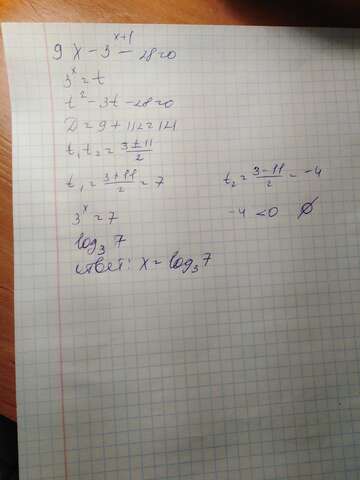 9 x - 3^{x+1} - 28=0
3^x = t
t^2 - 3t - 28=0
D = 9 + 112 = 121
t_1 t_2 = \frac{3 ± 11}{2}
t_1 = \frac{3+11}{2} = 7    t_2 = \frac{3-11}{2} = -4
3^x = 7    -4 < 0    ∅
log_3 7
ответ: x = log_3 7